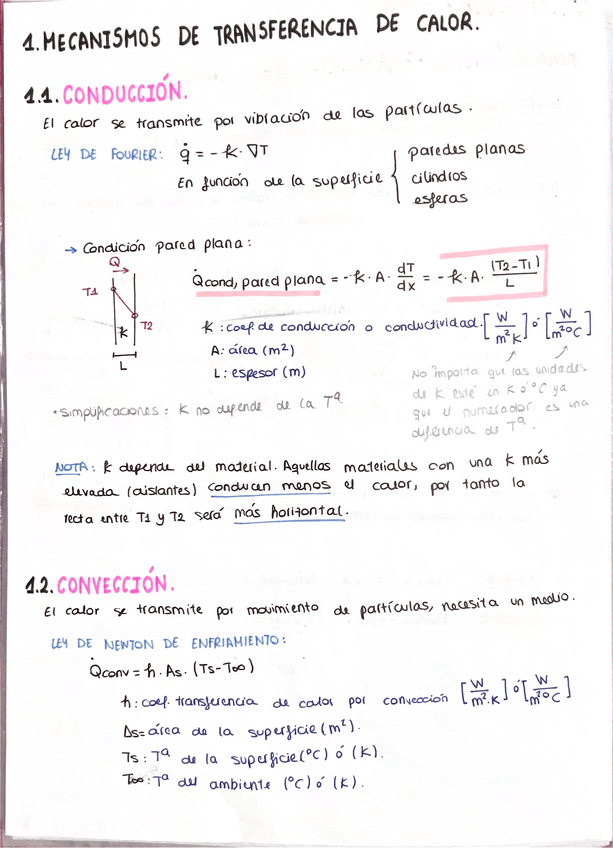 1. MECANISMOS DE TRANSFERENCIA DE CALOR.
1.1. CONDUCCIÓN.
El calor se transmite por vibración de las partículas.
LEY DE FOURIER: q̇ = - k · ∇T
En función de la superficie { paredes planas
cilindros
esferas
→ Condición pared plana:
Q
T1
T2
k
L
Q̇cond, pared plana = - k · A · dT/dx = - k · A · (T2-T1)/L
k : coef de conducción o conductividad. [W/m²K] ó [W/m²ºC]
A: área (m²)
L: espesor (m)
No importa que las unidades
de k esté en K ó ºC ya
que el numerador es una
diferencia de Tª.
• simplificaciones : k no depende de la Tª
NOTA: k depende del material. Aquellas materiales con una k más
elevada (aislantes) conducen menos el calor, por tanto la
recta entre T1 y T2 será más horizontal.
1.2. CONVECCIÓN.
El calor se transmite por movimiento de partículas, necesita un medio.
LEY DE NEWTON DE ENFRIAMIENTO:
Q̇conv = h · As. (Ts-T∞)
h: coef. transferencia de calor por convección [W/m²·K] ó [W/m²ºC]
As= área de la superficie (m²).
Ts: Tª de la superficie (ºC) ó (K).
T∞: Tª del ambiente (ºC) ó (K).